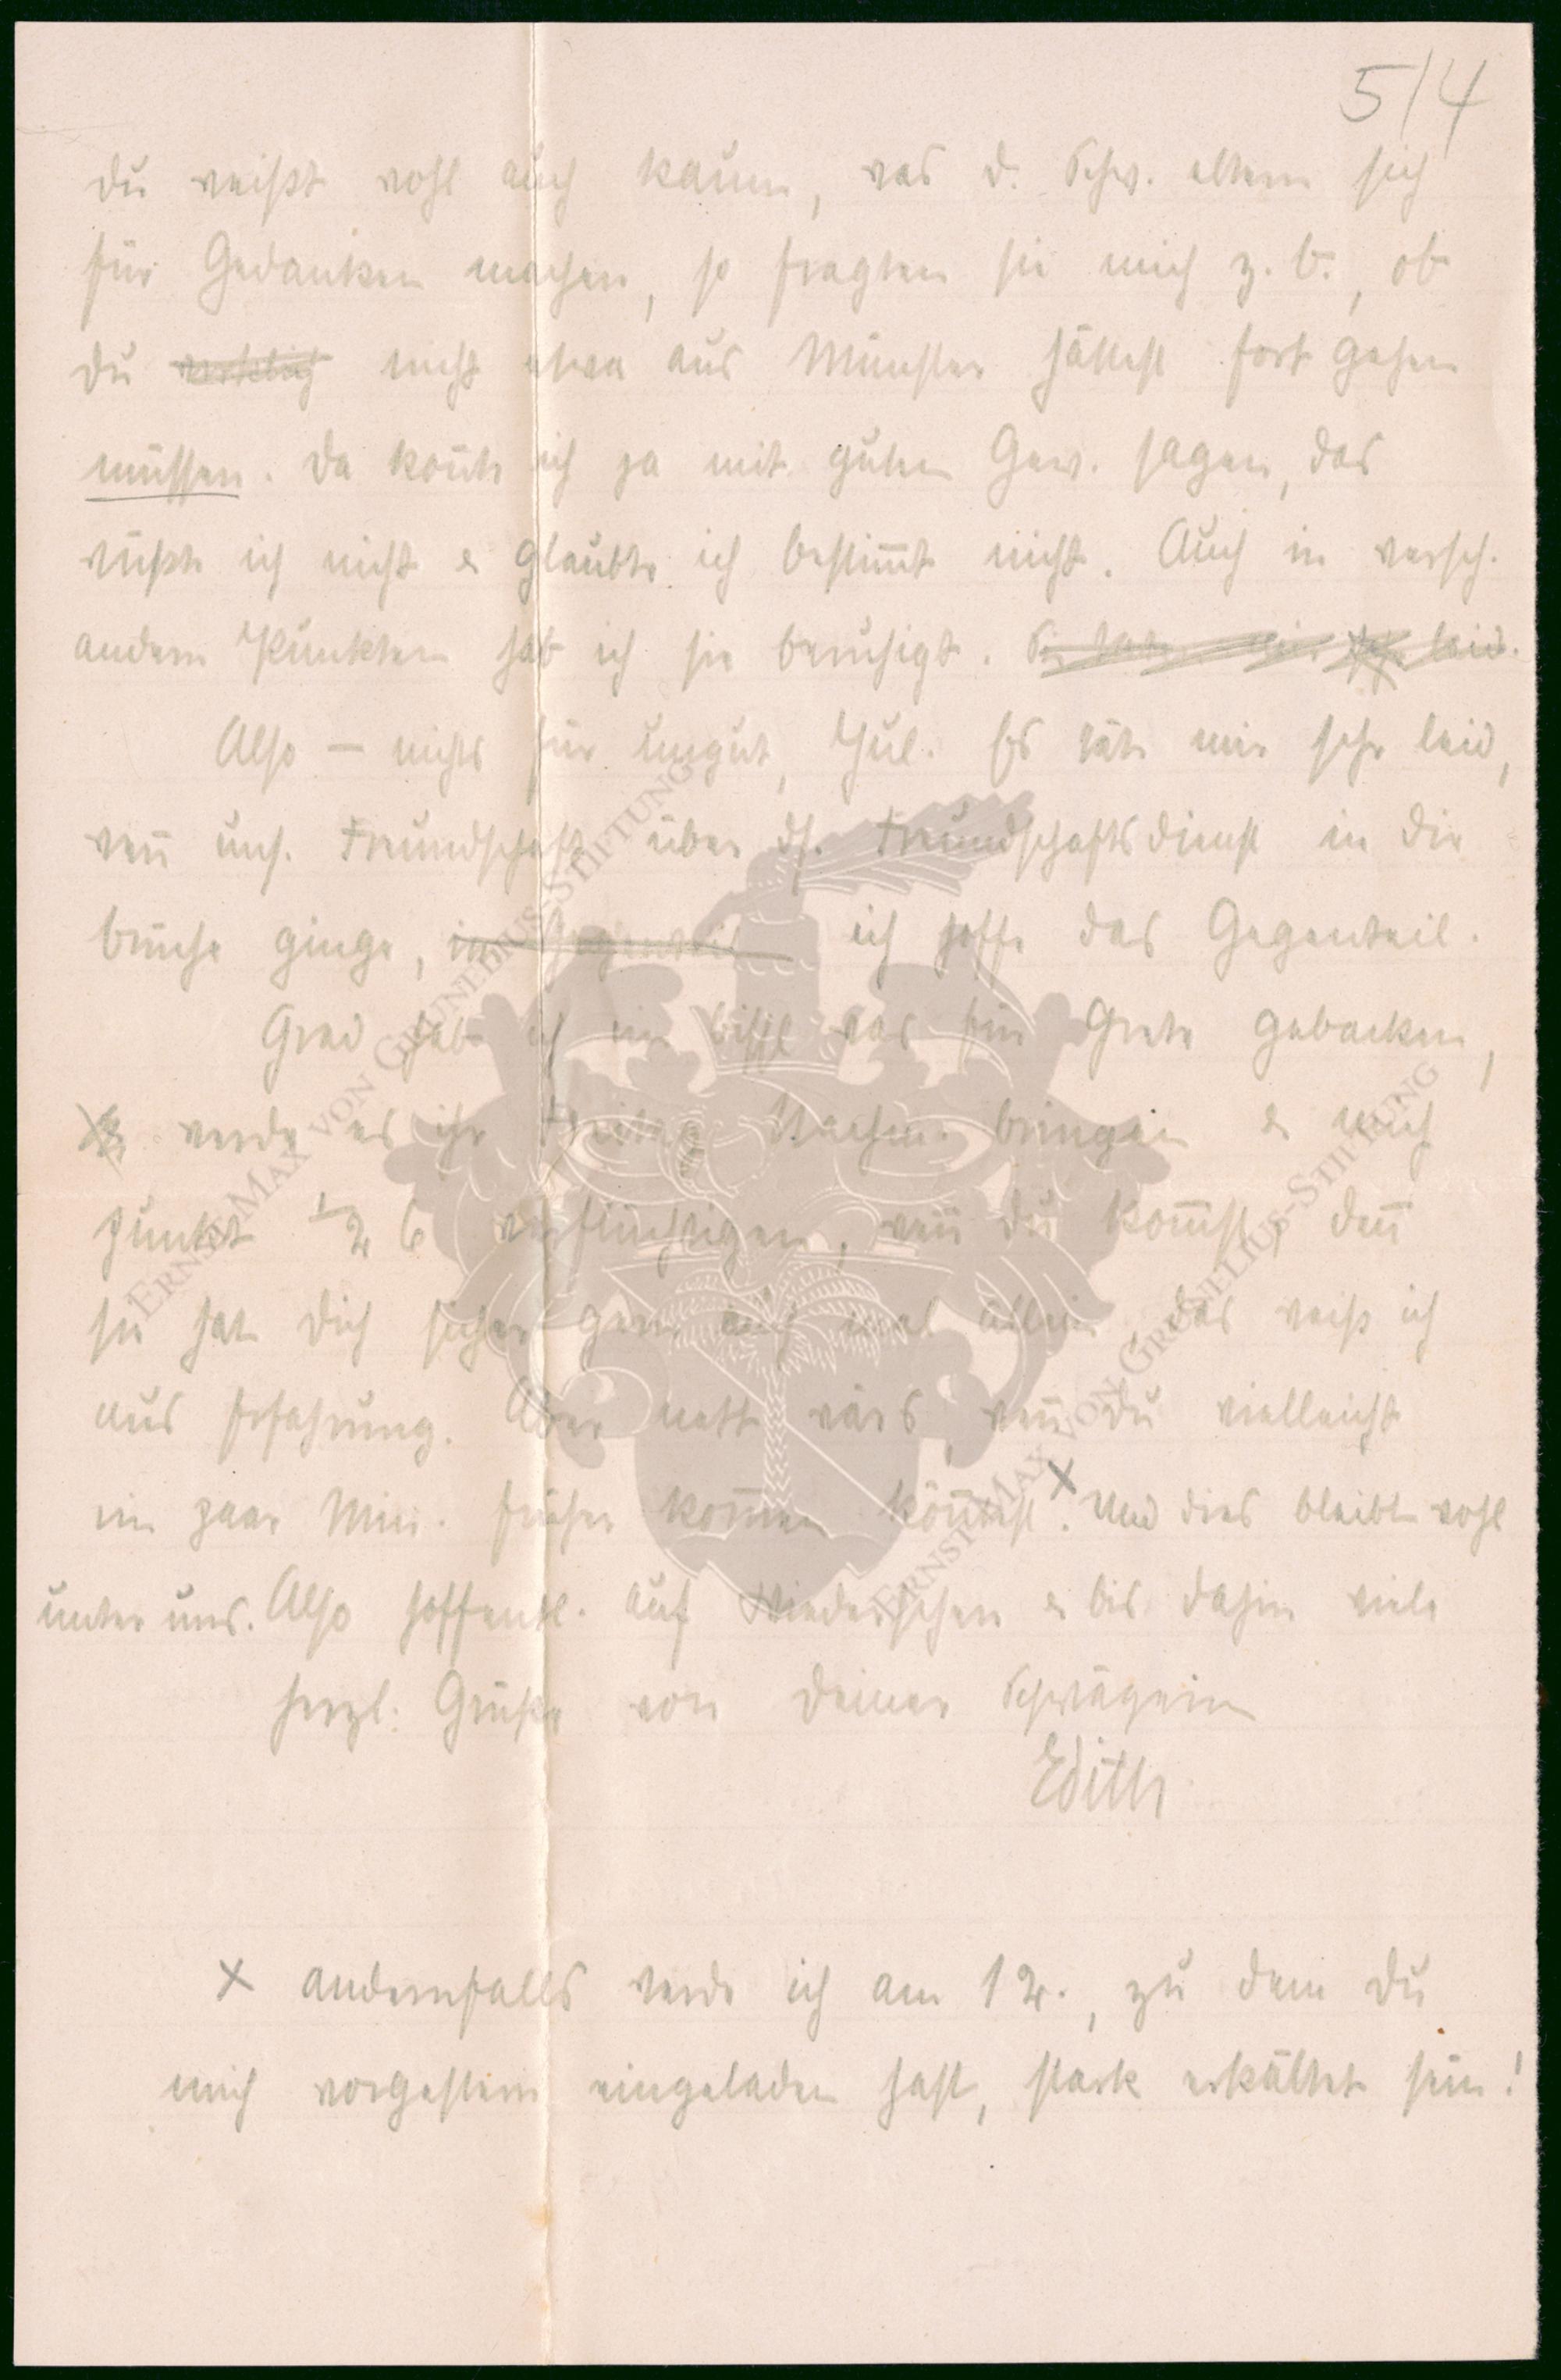 5/4
du weißt wohl auch kaum, was d. Schw. eltern sich
für Gedanken machen, so fragten sie mich z. B., ob
du wirklich nicht etwa aus Münster hättest fort gehen
müssen. Da konn̄te ich ja mit gutem Gew. sagen, das
wüßte ich nicht & glaubte ich bestim̄t nicht. Auch in versch.
andern Punkten hab ich sie beruhigt. Sie taten mir sehr leid.
Also – nichts für ungut, Jul. Es täte mir sehr leid,
wen̄ uns. Freundschaft über ds. Freundschaftsdienst in die
brüche ginge, im Gegenteil ich hoffe das Gegenteil.
Grad hab ich ein bissl was für Grete gebacken,
& werde es ihr Nachm. bringen & mich
punkt 1/2 6 verflüchtigen, wen̄ du kom̄st, den̄
sie hat dich sicher gern auch mal allein, das weiß ich
aus Erfahrung. Aber nett wärs, wen̄ du vielleicht
ein paar Min. früher kom̄en kön̄test x. Und dies bleibt wohl
unter uns. Also hoffentl. auf Wiedersehen & bis dahin viele
herzl. Grüße von deiner Schwägerin
Edith
x andernfalls werde ich am 12., zu dem du
mich vorgestern eingeladen hast, stark erkältet sein!
ERNST MAX VON GRUNELIUS-STIFTUNG
ERNST MAX VON GRUNELIUS-STIFTUNG